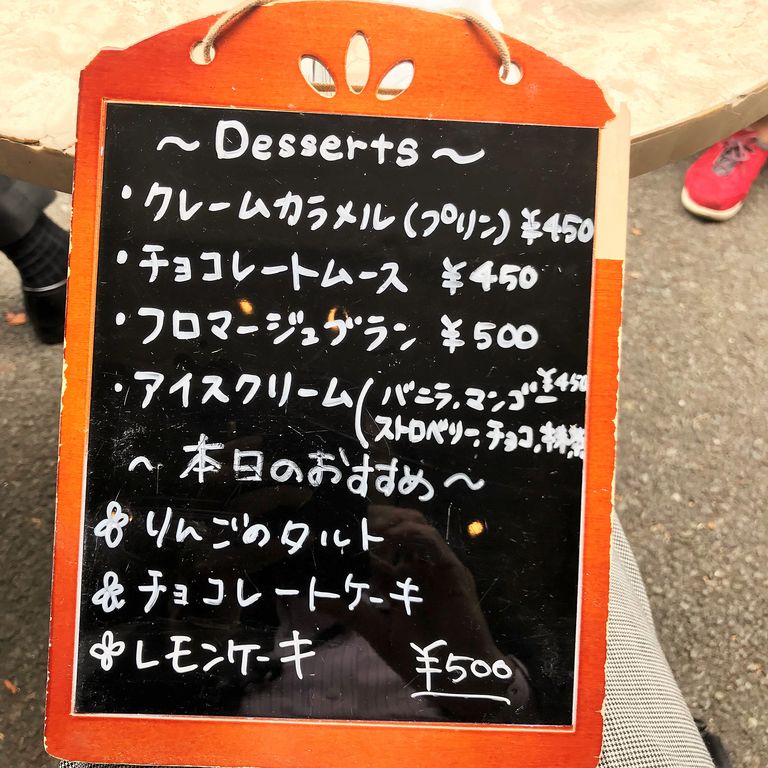 ~ Desserts ~
・クレームカラメル(プリン) ¥450
・チョコレートムース ¥450
・フロマージュブラン ¥500
・アイスクリーム(バニラ、マンゴー ¥450
ストロベリー、チョコ、抹茶
~ 本日のおすすめ ~
りんごのタルト
チョコレートケーキ
レモンケーキ ¥500